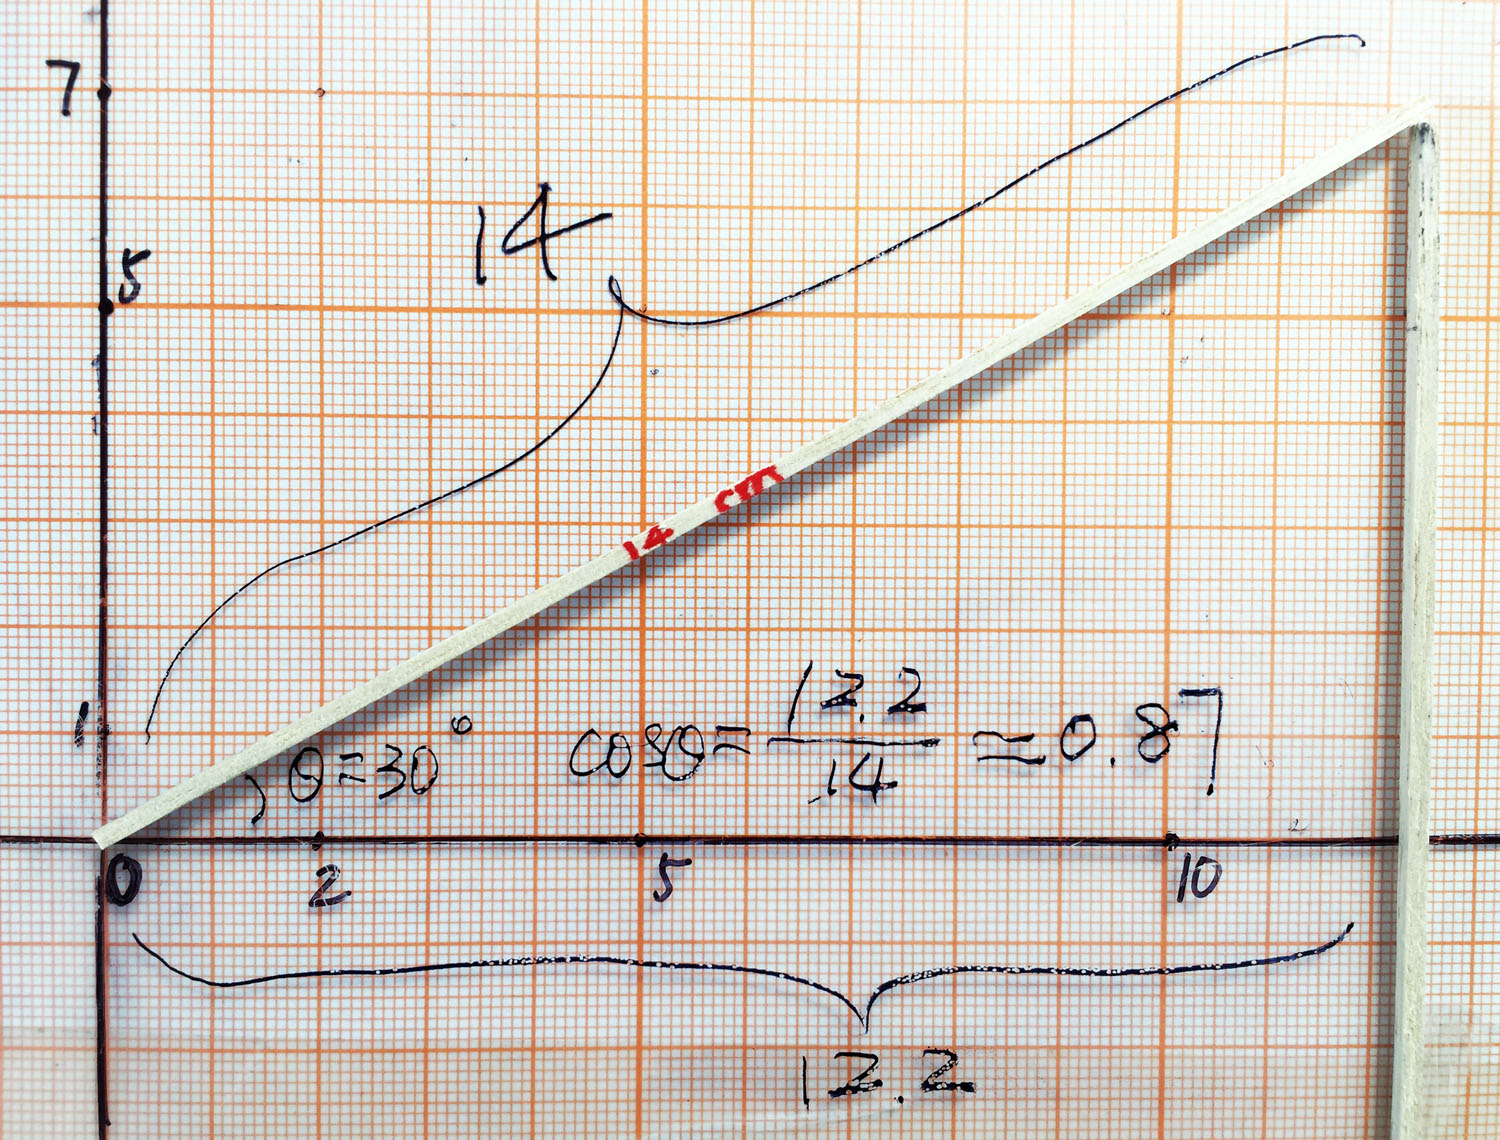 7
5
14
14 cm
1
θ=30° cosθ= 12.2/14 ≃0.87
0 2 5 10
12.2